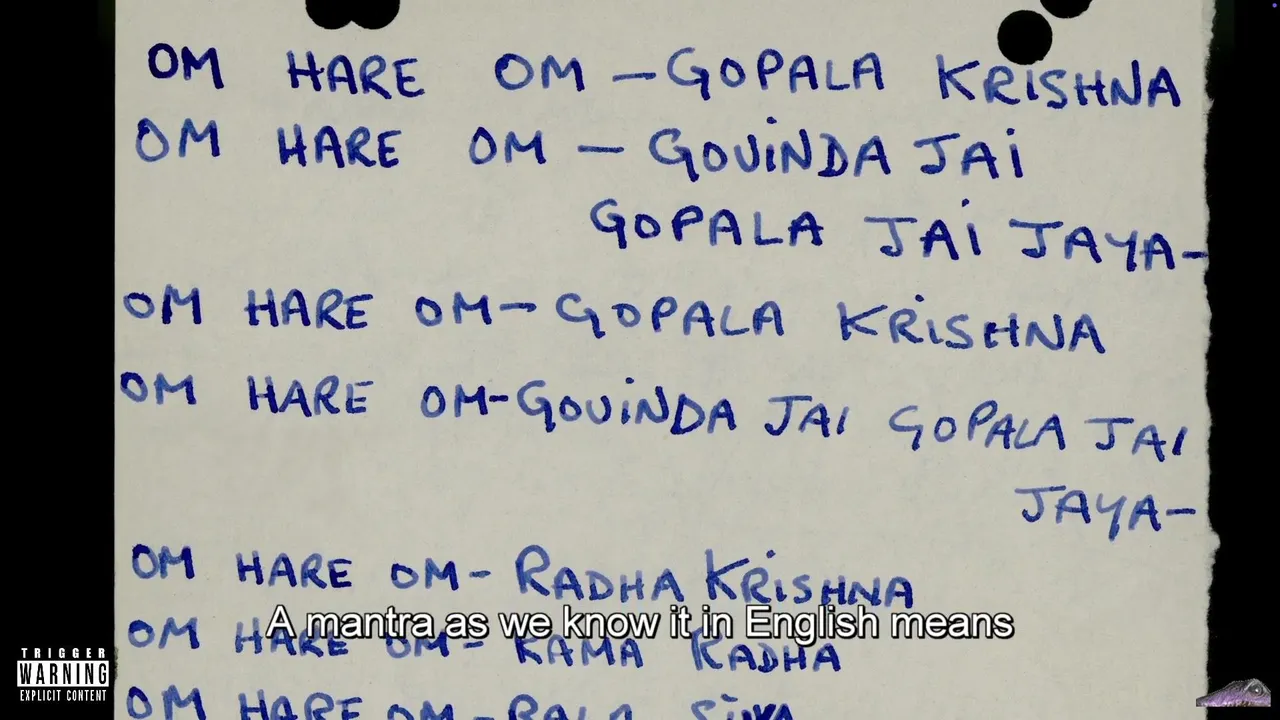 OM HARE OM — GOPALA KRiSHNA
OM HARE OM — GOViNDA JAi
GOPALA JAi JAYA-
OM HARE OM- GOPALA KRiSHNA
OM HARE OM-GOUiNDA JAI GOPALA JAI
JAYA-
OM HARE OM- RADHA KRiSHNA
A mantra as we know it in English means
OM HARE OM- RAMA RADHA
OM HARE OM-
TRIGGER
WARNING
EXPLICIT CONTENT